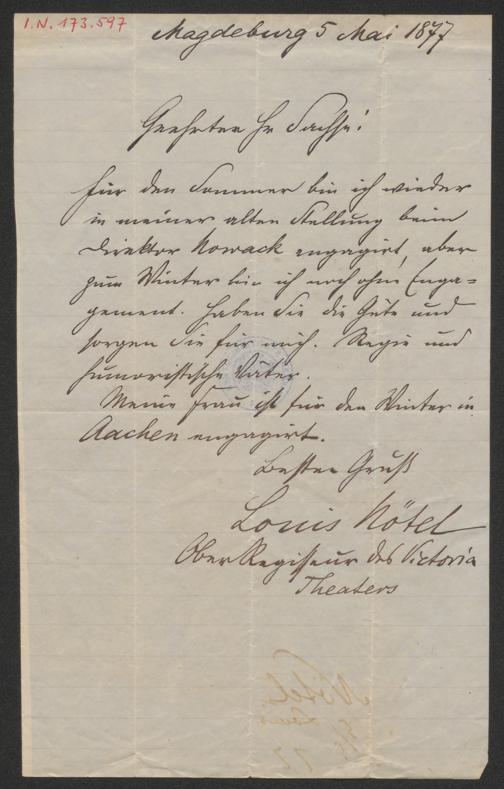 I.N. 173.597
Magdeburg 5 Mai 1877
Geehrter Hr Sachse!
Für den Sommer bin ich wieder
in meiner alten Stellung beim
Direktor Nowack engagirt, aber
zum Winter bin ich noch ohne Enga=
gement. Haben Sie die Güte und
sorgen Sie für mich. Regie und
humoristische Väter.
Meine Frau ist für den Winter in
Aachen engagirt.
Besten Gruß
Louis Nötel
Ober Regisseur des Victoria
Theaters